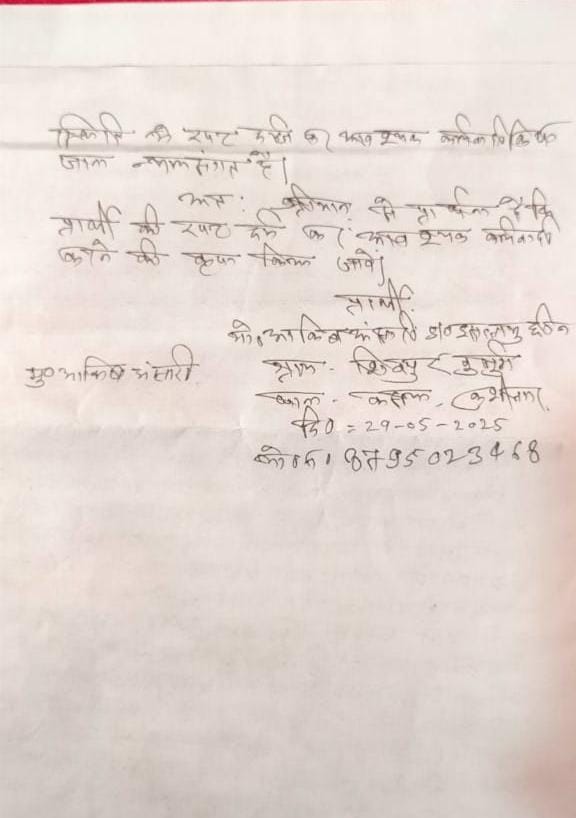 स्थिति में रपट दर्ज कर आवश्यक कार्यवाही किया
जाना न्यायसंगत है।
अतः श्रीमान् से प्रार्थना है कि
प्रार्थी की रपट दर्ज कर आवश्यक कार्यवाही
करने की कृपा किया जावे।
प्रार्थी
मो० आकिब अंसारी
ग्राम - शिवपुर बुजुर्ग
मु० आकिब अंसारी
थाना - कसया, कुशीनगर,
दि० = 29-05-2025
मो० नं० 8795023468